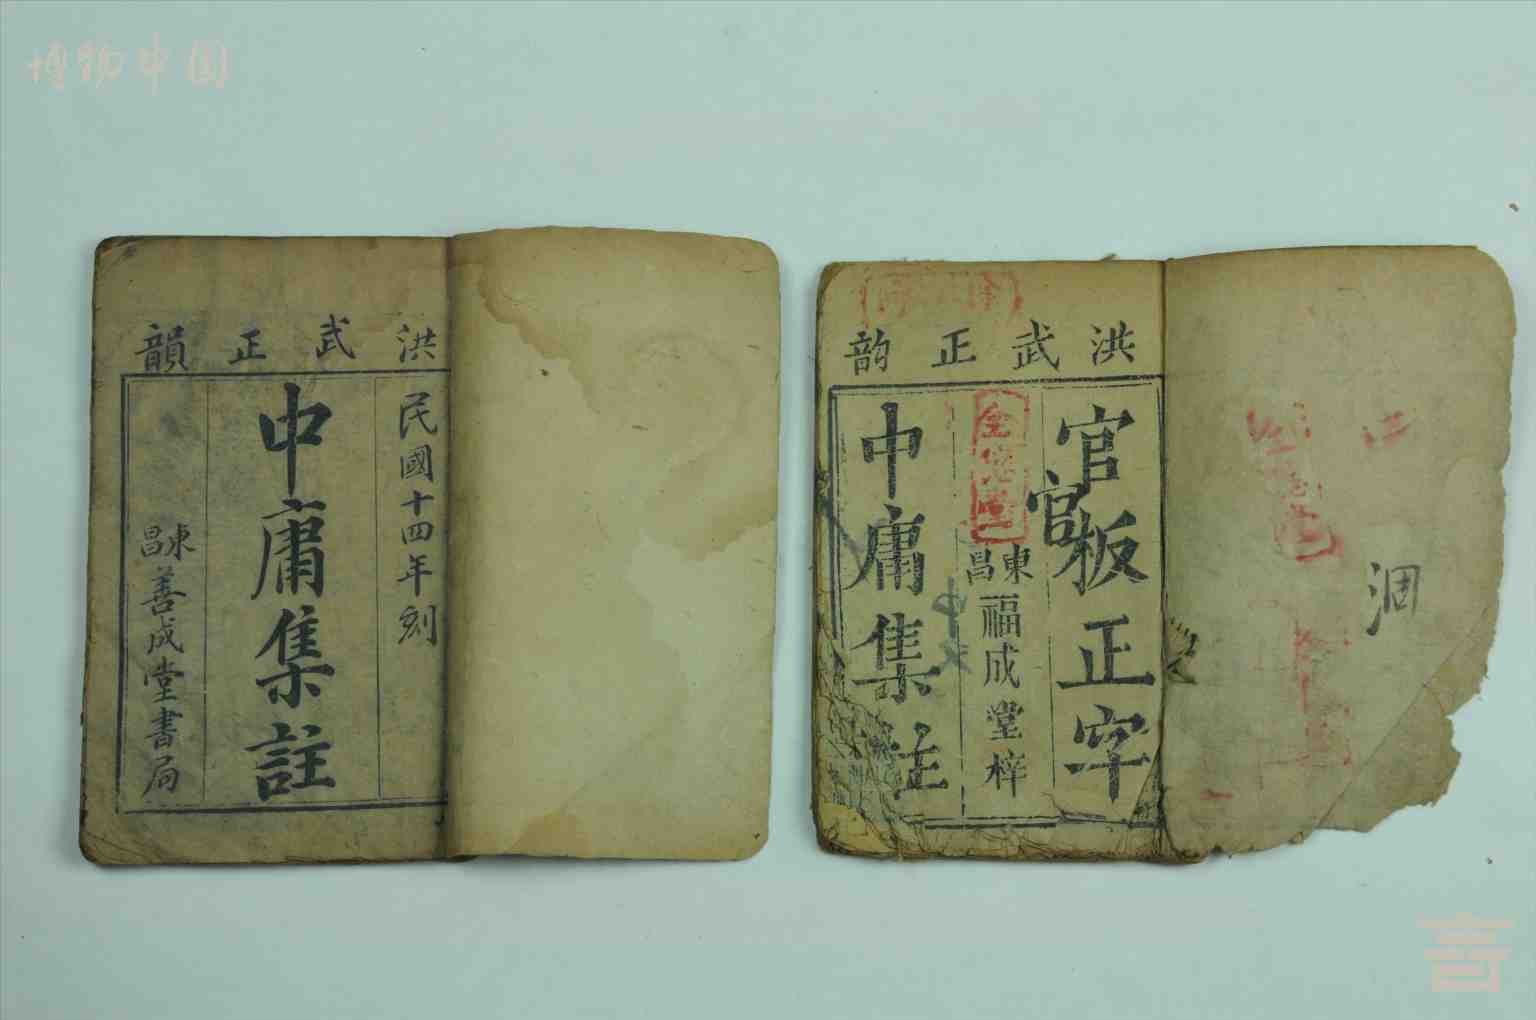 博物中国
洪武正韻
民國十四年刻
中庸集註
東昌善成堂書局
洪武正韵
官板正字
官
東昌福成堂梓
中庸集註
中
涸